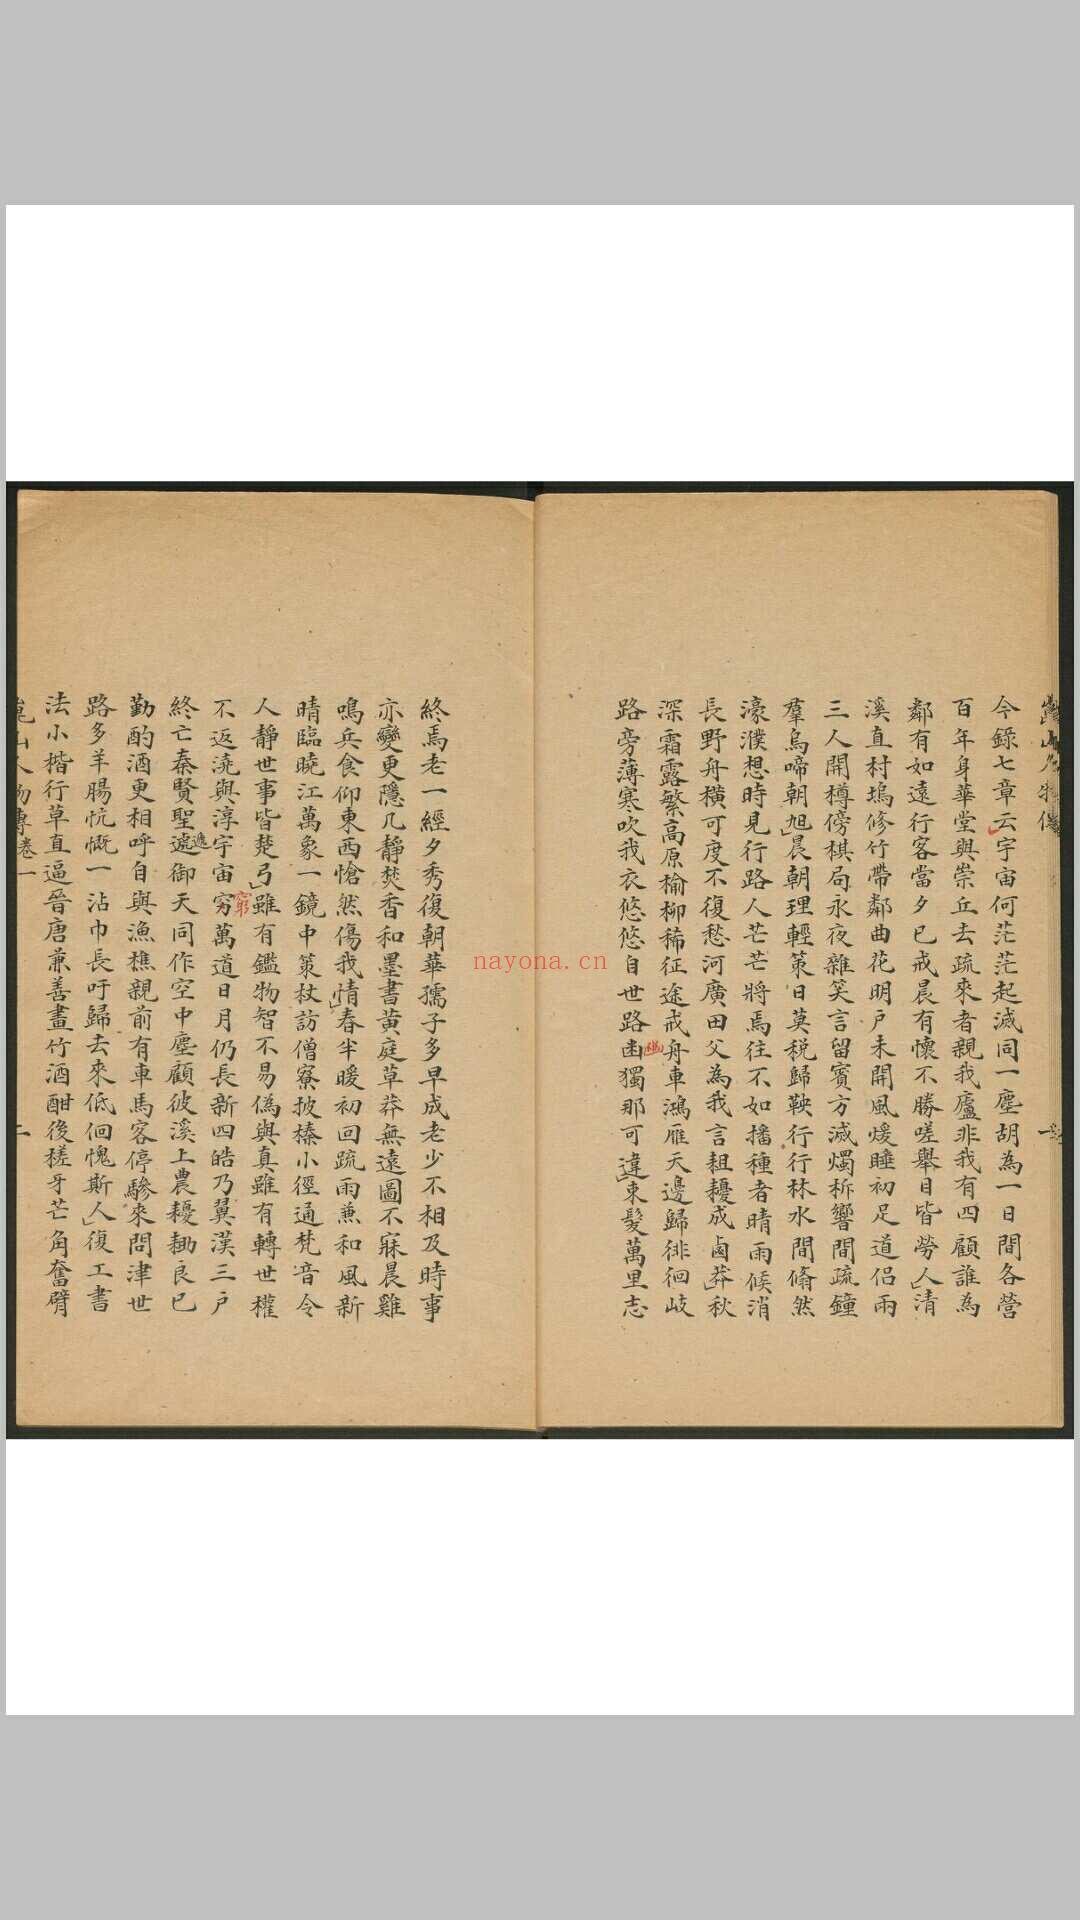 今錄七章云宇宙何茫茫起滅同一塵胡為一日間各營
百年身華堂與崇丘去疏來者親我廬非我有四顧誰為
鄰有如遠行客當夕已戒晨有懷不勝嗟舉目皆勞人清
溪直村塢修竹帶鄰曲花明戶未開風煖睡初足道侶兩
三人開樽傍棋局永夜雜笑言留賓方滅燭柝響間疏鐘
羣烏啼朝旭晨朝理輕策日莫稅歸鞅行行林水間翛然
濠濮想時見行路人芒芒將焉往不如播種者晴雨候消
長野舟橫可度不復愁河廣田父為我言耝耰成鹵莽秋
深霜露繁高原榆柳稀征途戒舟車鴻雁天邊歸徘徊岐
路旁薄寒吹我衣悠悠自世路幽獨那可違束髮萬里志
終焉老一經夕秀復朝華孺子多早成老少不相及時事
亦變更隱几靜焚香和墨書黃庭草莽無遠圖不寐晨雞
鳴兵食仰東西愴然傷我情春半暖初回疏雨兼和風新
晴臨曉江萬象一鏡中策杖訪僧寮披榛小徑通梵音令
人靜世事皆楚弓雖有鑑物智不易偽與真雖有轉世權
不返澆與淳宇宙穷萬道日月仍長新四皓乃翼漢三戶
窮
終亡秦賢聖遞御天同作空中塵顧彼溪上農耰耡良已
勤酌酒更相呼自與漁樵親前有車馬客停驂來問津世
路多羊腸忼慨一沾巾長吁歸去來低佪愧斯人復工書
法小楷行草直逼晉唐兼善畫竹酒酣後槎牙芒角奮臂
崑山人物傳卷一
二
nayona.cn